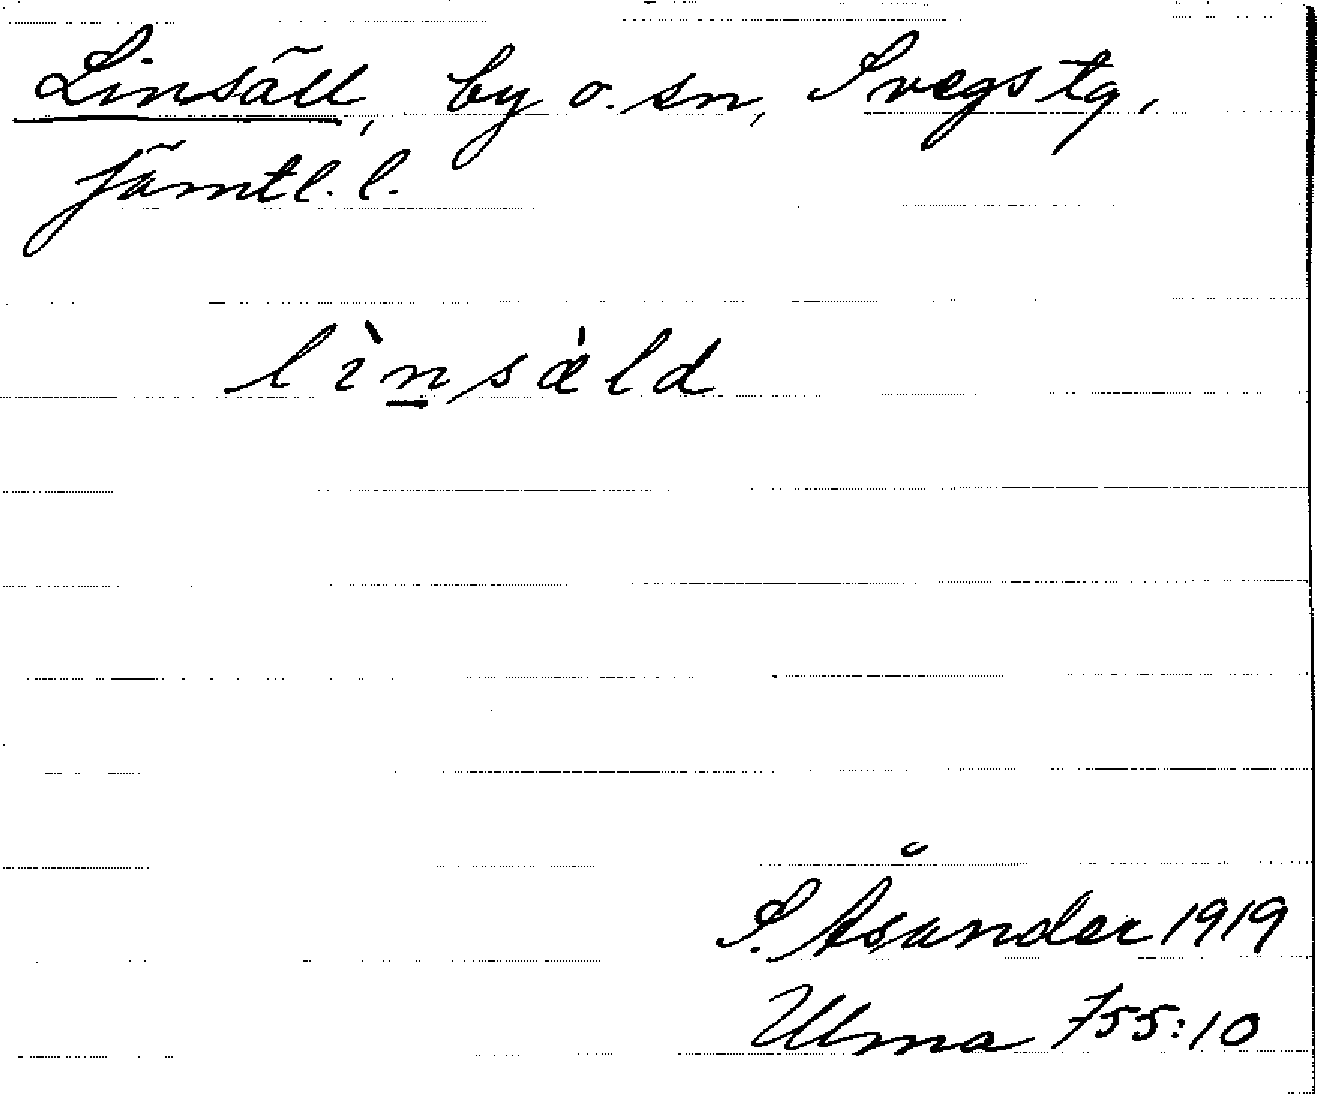 Linsäll, by o. sn, Svegs tg,
Jämtl. l.
lìnsæ̍ld
S. Åsander 1919
Ulma 755:10